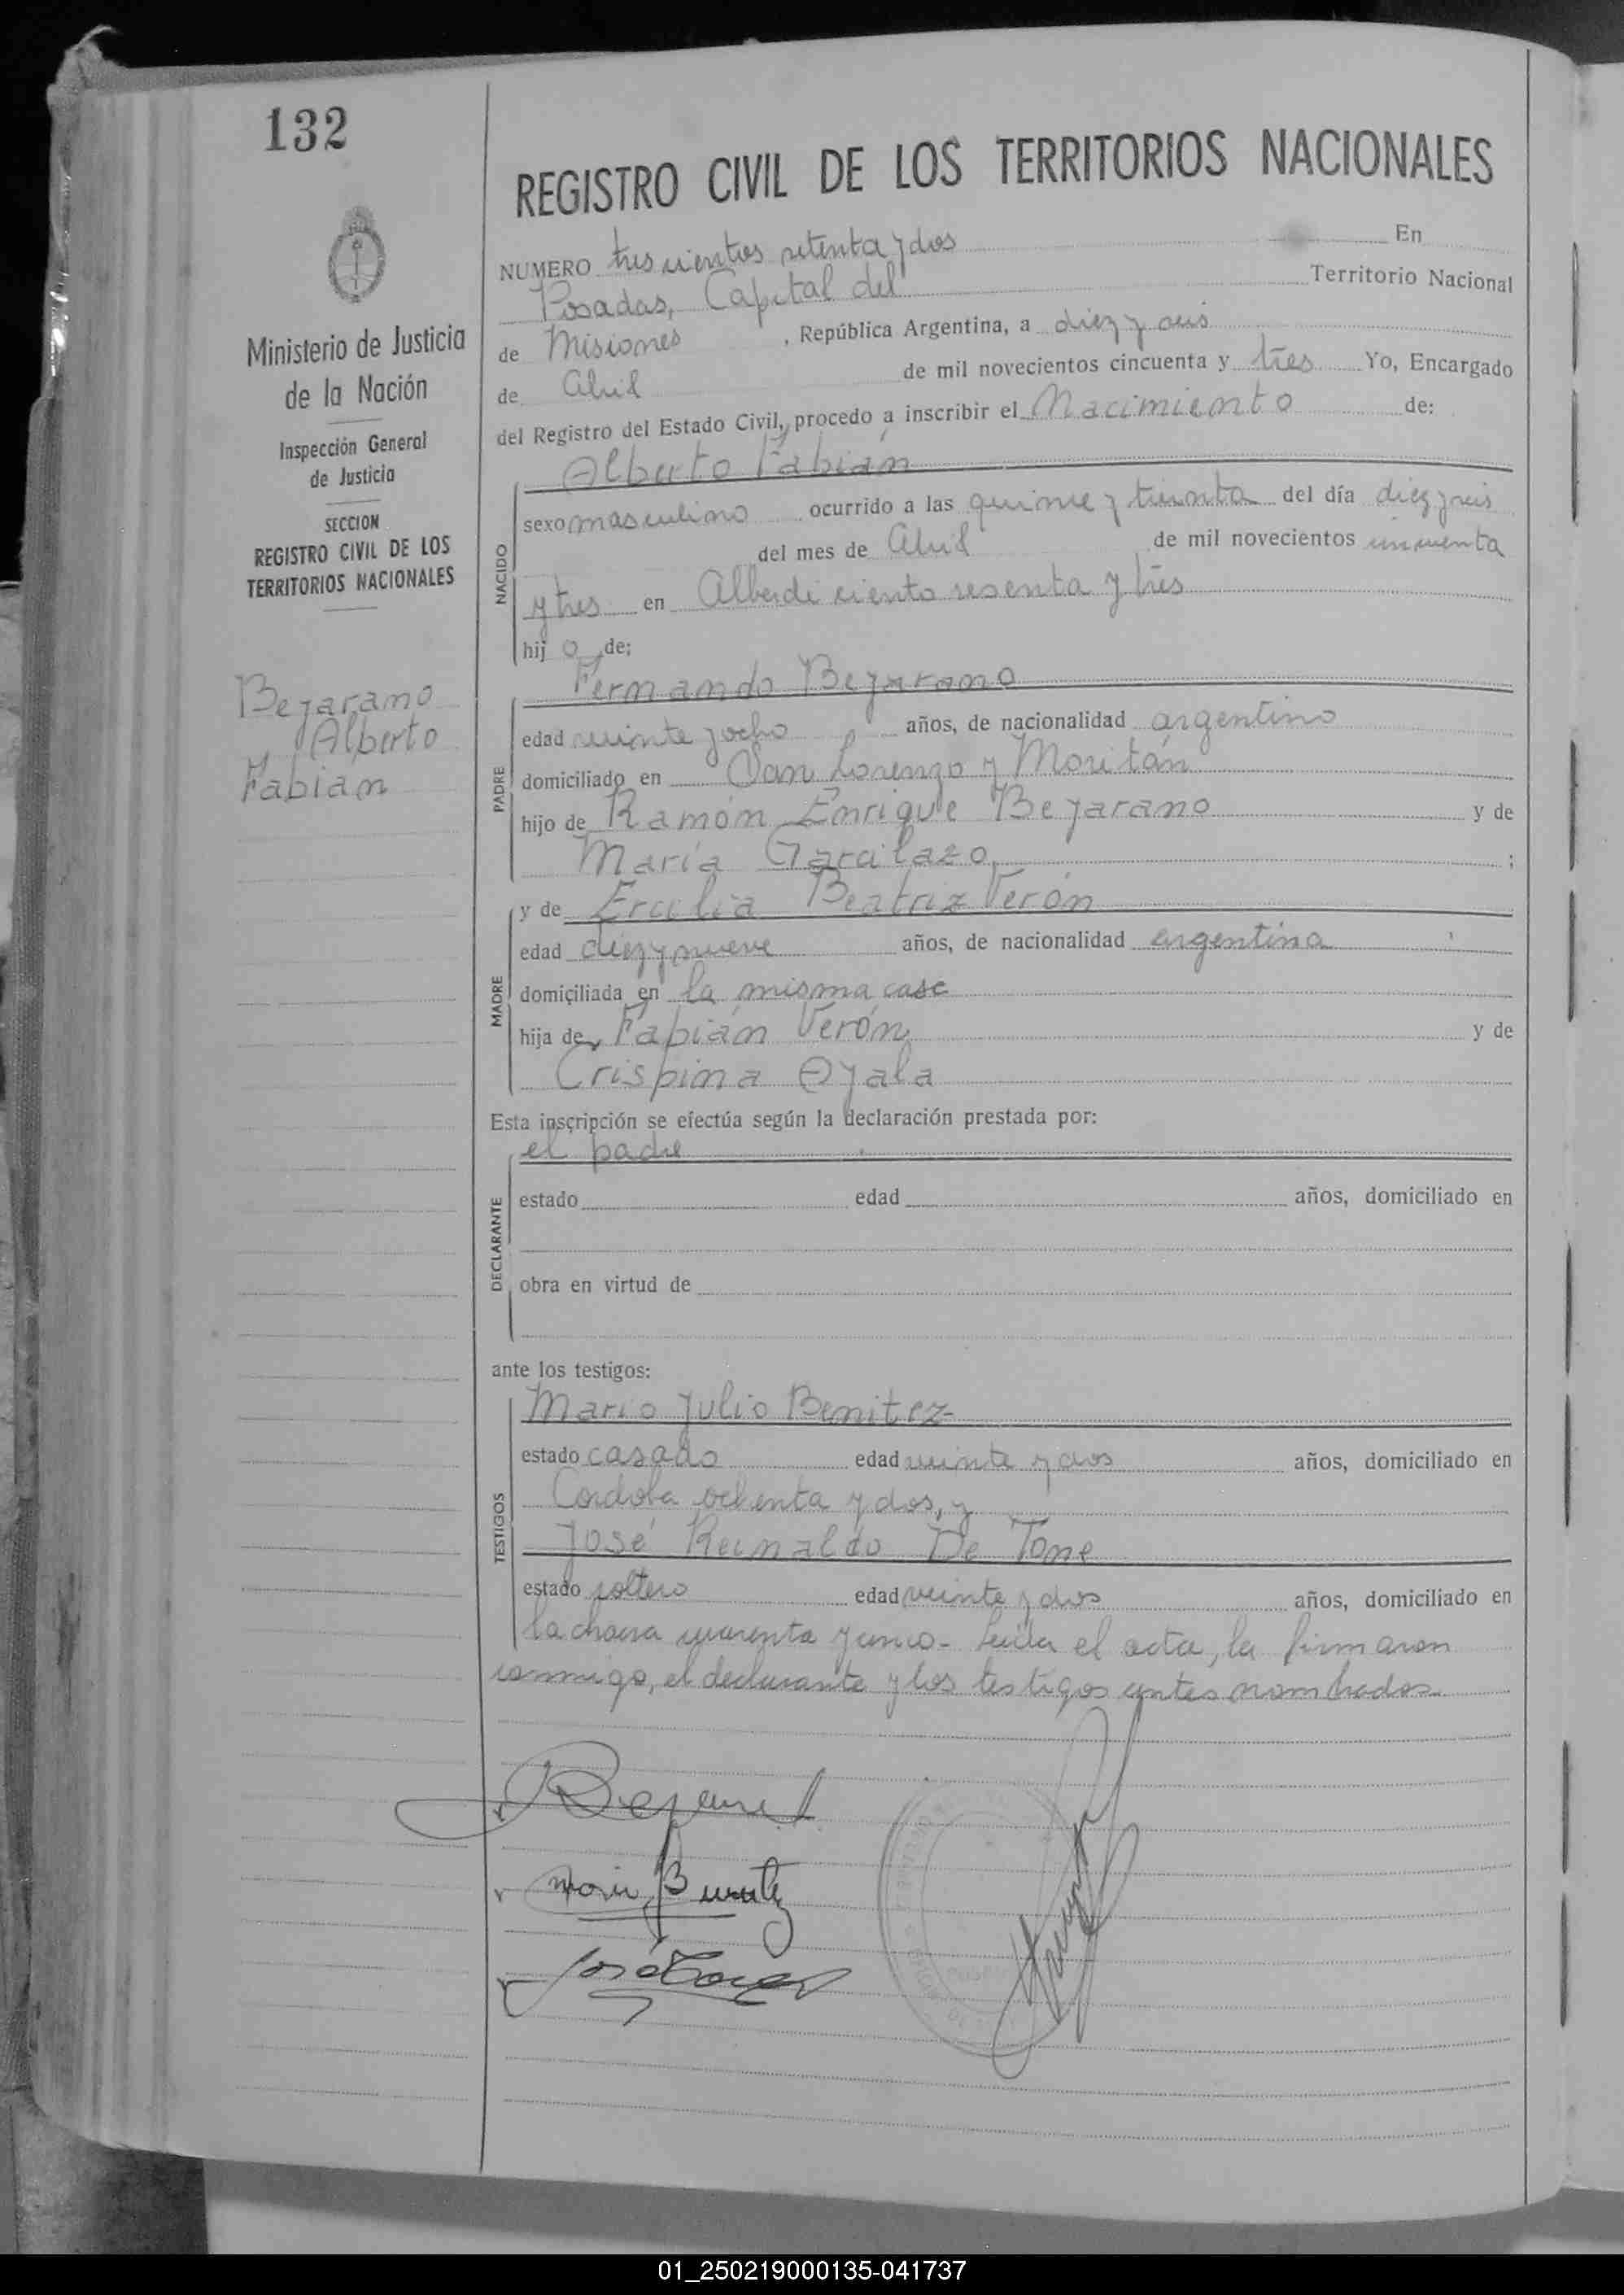 132
REGISTRO CIVIL DE LOS TERRITORIOS NACIONALES
Ministerio de Justicia
de la Nación
Inspección General
de Justicia
SECCION
REGISTRO CIVIL DE LOS
TERRITORIOS NACIONALES
Bejarano
Alberto
Fabian
NUMERO trescientos setenta y dos En
Posadas, Capital del Territorio Nacional
de Misiones, República Argentina, a diez y seis
de Abril de mil novecientos cincuenta y tres Yo, Encargado
del Registro del Estado Civil, procedo a inscribir el Nacimiento de:
Alberto Fabián
NACIDO
sexo masculino ocurrido a las quince y treinta del día diez y seis
del mes de Abril de mil novecientos cincuenta
y tres en Alberdi ciento sesenta y tres
hij o de;
PADRE
Fernando Bejarano
edad veinte y ocho años, de nacionalidad argentino
domiciliado en San Lorenzo y Moritán
hijo de Ramón Enrique Bejarano y de
María Garcilazo ;
MADRE
y de Ercilia Beatriz Verón
edad diez y nueve años, de nacionalidad argentina
domiciliada en la misma casa
hija de Fabián Verón y de
Crispina Ayala
Esta inscripción se efectúa según la declaración prestada por:
el padre
DECLARANTE
estado edad años, domiciliado en
obra en virtud de
ante los testigos:
TESTIGOS
Mario Julio Benitez
estado casado edad veinte y dos años, domiciliado en
Cordoba ochenta y dos, y
José Reinaldo De Tone
estado soltero edad veinte y dos años, domiciliado en
la chacra cuarenta y cinco - Leída el acta, la firmaron
conmigo, el declarante y los testigos antes nombrados.
01_250219000135-041737